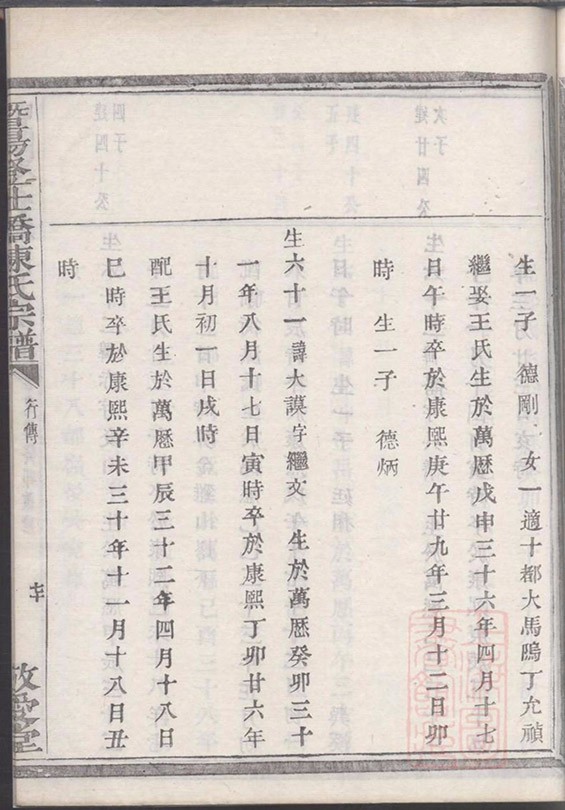 生一子 德剛 女一適十都大馬隖丁允禎
繼娶王氏生於萬曆戊申三十六年四月十七
日午時卒於康熙庚午廿九年三月十二日卯
時 生一子 德炳
生六十一 諱大謨字繼文 生於萬曆癸卯三十
一年八月十七日寅時卒於康熙丁卯廿六年
十月初一日戌時
配王氏生於萬曆甲辰三十二年四月十八日
巳時卒於康熙辛未三十年十一月十八日丑
時
暨陽 橋陳氏宗譜 行傳 敬愛堂